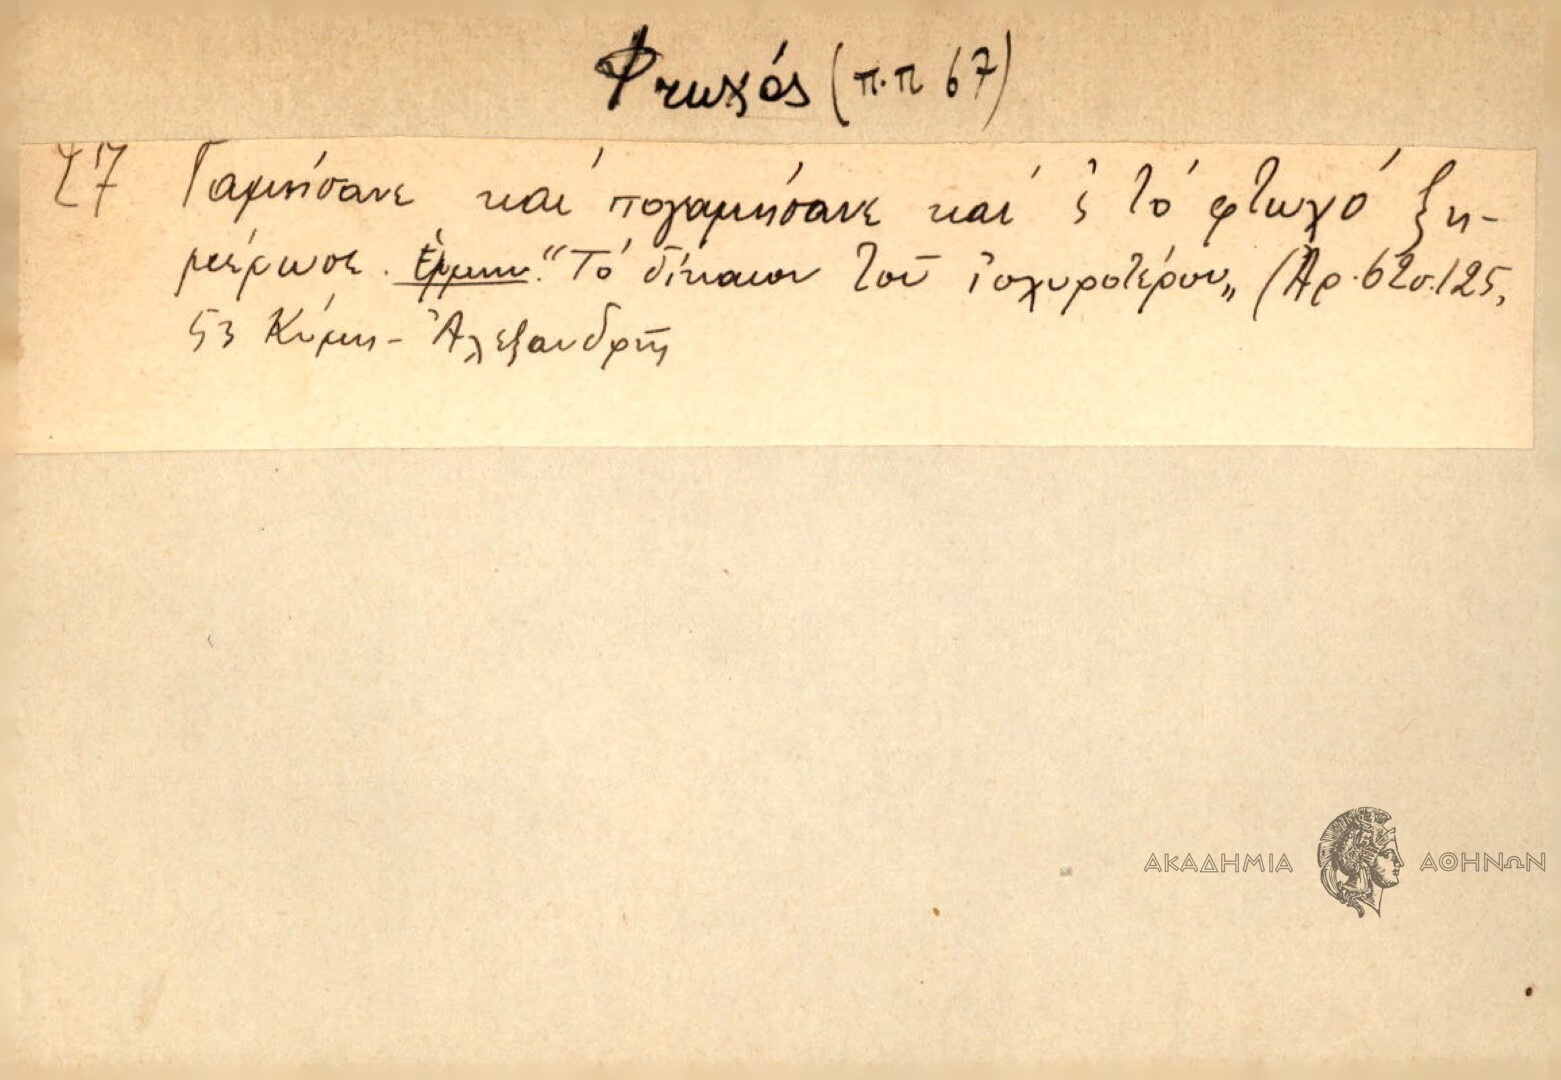 Φτωχός (π.π 67)
27 Γαμήσανε καί πογαμήσανε καί ς τό φτωχό ξη-
μέρωσε. Ἑρμην. "Τό δίκαιον τοῦ ἰσχυροτέρου„ (Ἀρ. 62 σ.125,
53 Κύμη - Ἀλεξανδρῆ
ΑΚΑΔΗΜΙΑ ΑΘΗΝΩΝ